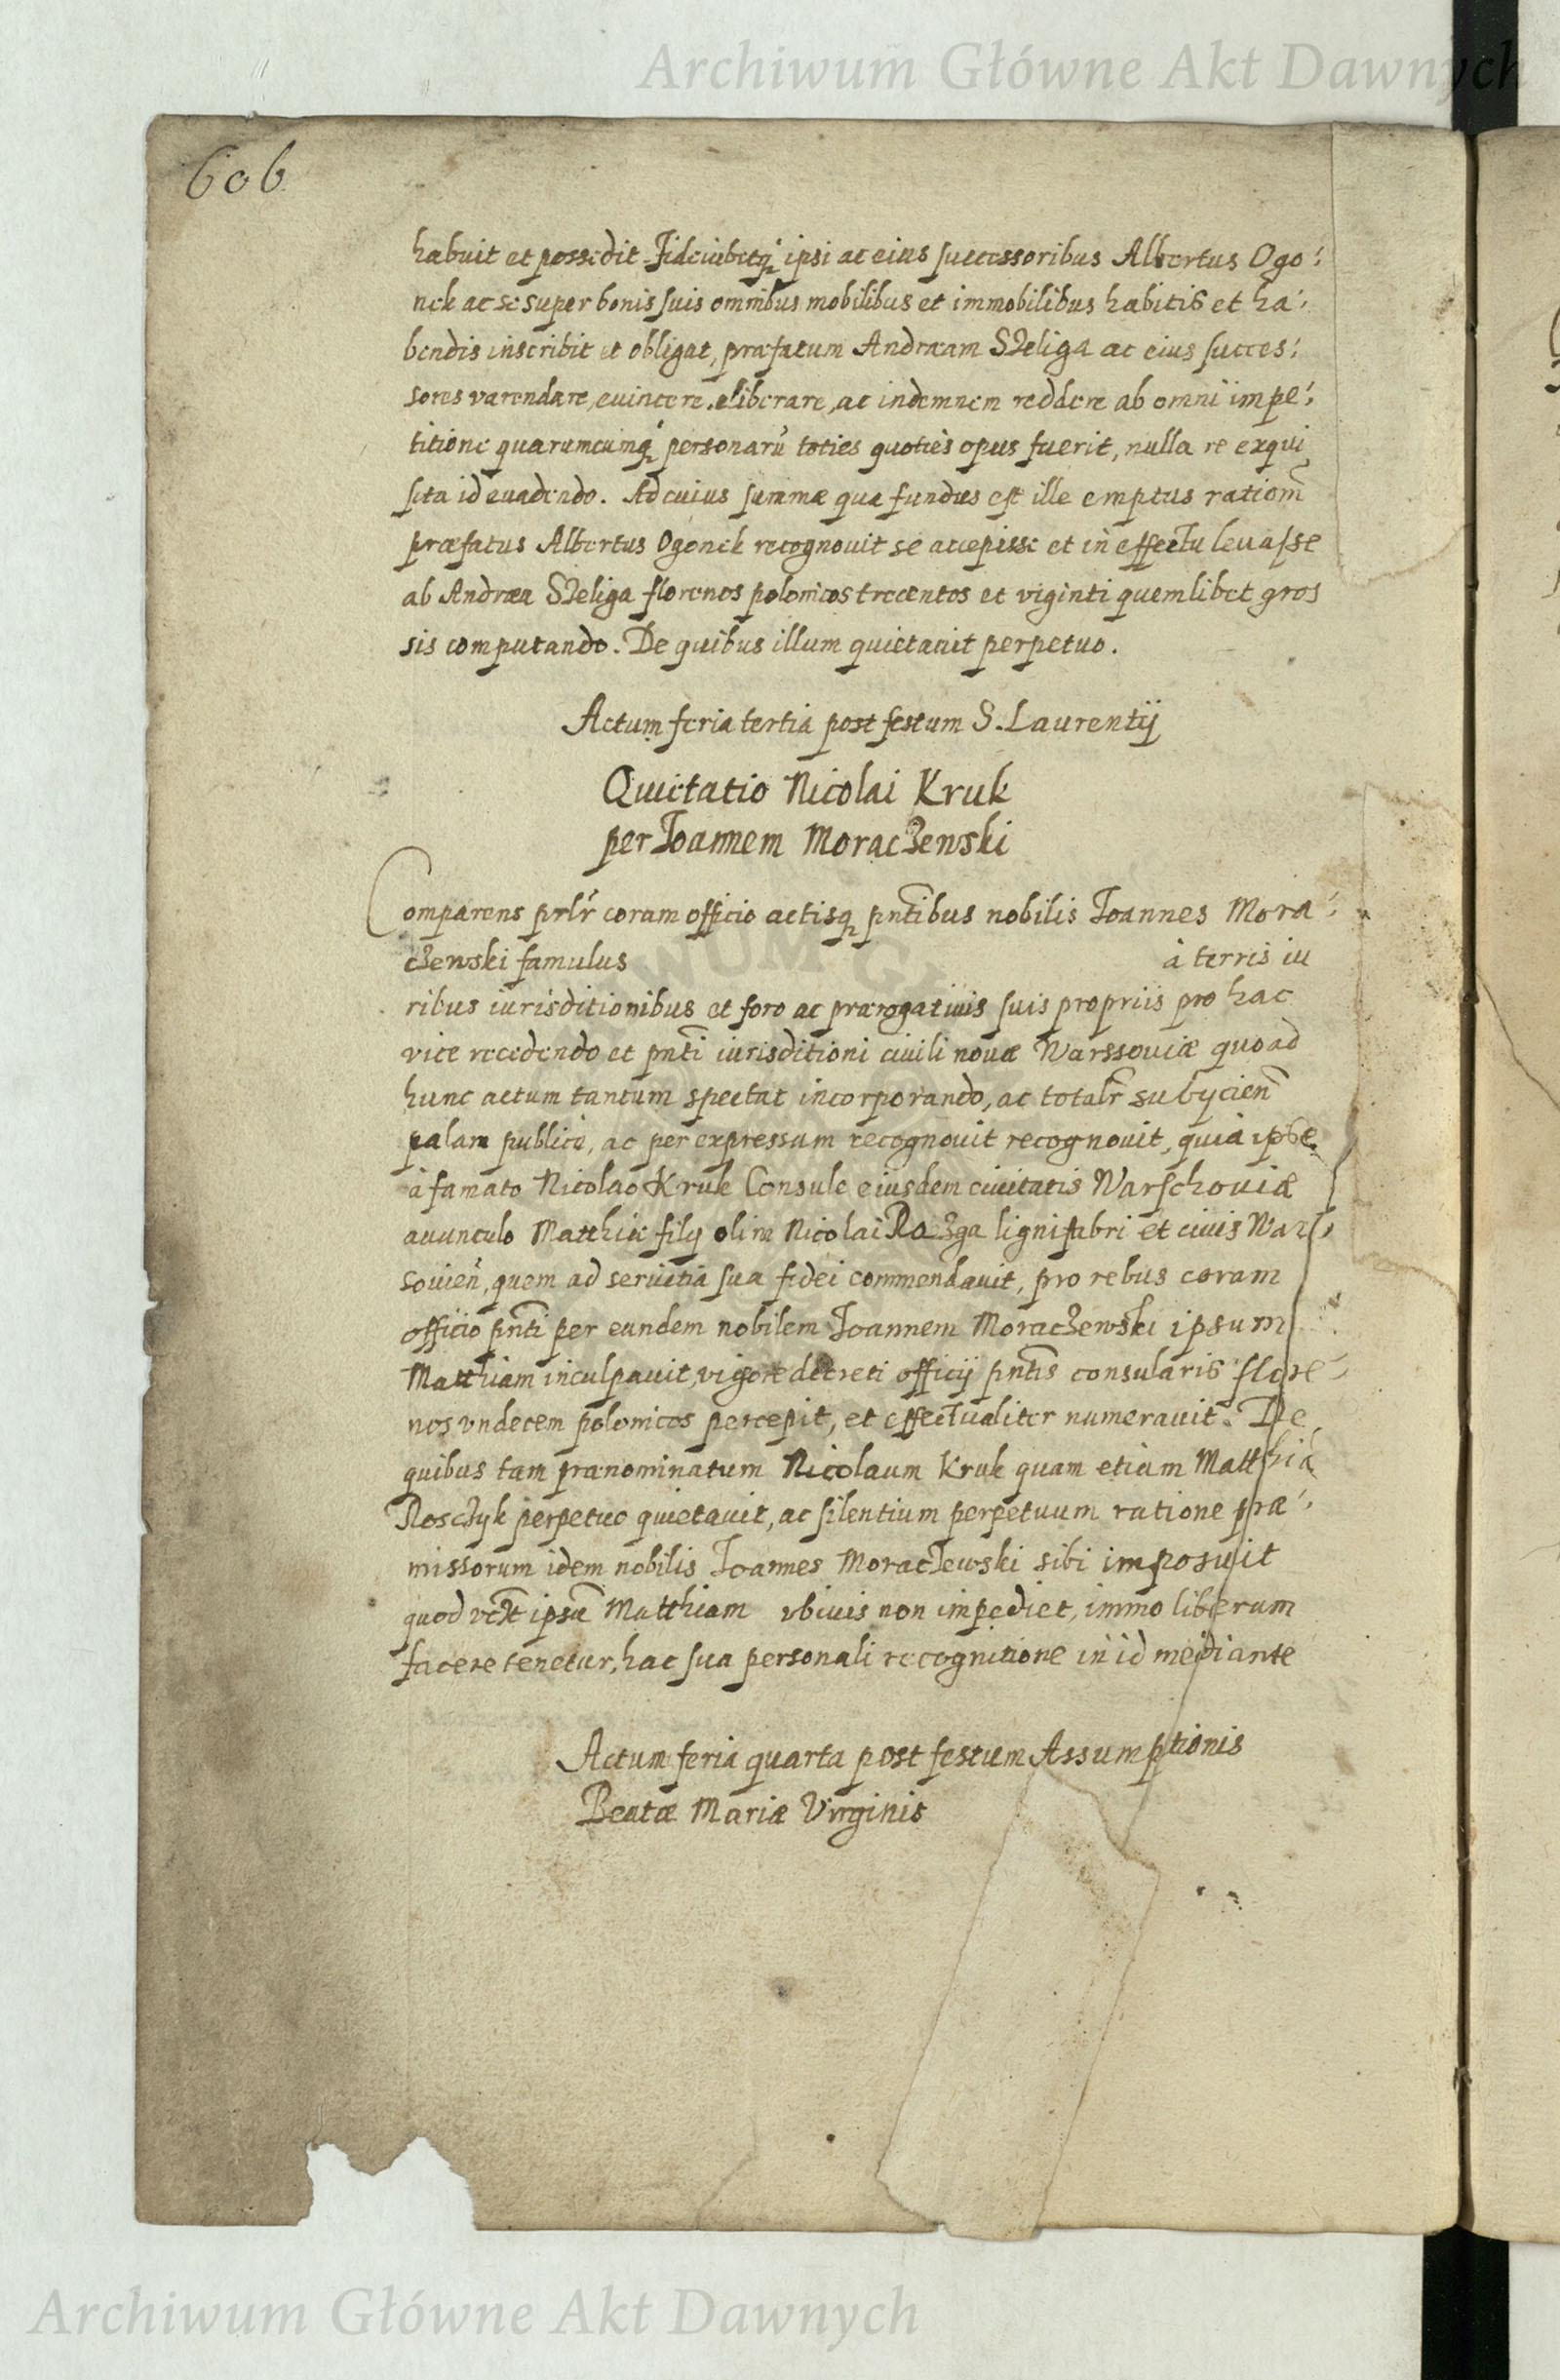 Archiwum Główne Akt Dawnych
606
habuit et possedit Fideiubetq́ ipsi ac eius successoribus Albertus Ogo:
nek ac se super bonis suis omnibus mobilibus et immobilibus habitis et ha:
bendis inscribit et obligat, præfatum Andræam Szeliga ac eius succes:
sores varendare, euincere, eliberare, ac indemnem reddere ab omni impe:
titione quarumcumq́ personarū toties quoties opus fuerit, nulla re exqui
sita id euadendo. Ad cuius summæ qua fundus est ille emptus rationē
præfatus Albertus Ogonek recognouit se accepisse et in effectu leuasse
ab Andræa Szeliga florenos polonicos trecentos et viginti quemlibet gros
sis computando. De quibus illum quietauit perpetuo.
Actum feria tertia post festum S. Laurentij
Quietatio Nicolai Kruk
per Ioannem Moraczewski
Comparens prlr̄ coram officio actisq, pn̄tibus nobilis Ioannes Mora:
czewski famulus à terris iu
ribus iurisditionibus et foro ac prærogatiuis suis propriis pro hac
vice recedendo et pn̄ti iurisditioni ciuili nouæ Warssouiæ quoad
hunc actum tantum spectat incorporando, ac totalr̄ subijcien̄
palam publice, ac per expressum recognouit recognouit, quia ipse
à famato Nicolao Kruk Consule eiusdem ciuitatis Warschouiæ
auunculo Matthiæ filij olim Nicolai Rozga lignifabri et ciuis Wars,
souien̄, quem ad seruitia sua fidei commendauit, pro rebus coram
officio pn̄ti per eundem nobilem Ioannem Moraczewski ipsum
Matthiam inculpauit, vigore decreti officij pn̄tis consularis flore:
nos vndecem polonicos percepit, et effectualiter numerauit. De
quibus tam prænominatum Nicolaum Kruk quam etiam Matthiā
Rosczyk perpetuo quietauit, ac silentium perpetuum ratione præ:
missorum idem nobilis Ioannes Moraczewski sibi imposuit
quod ipsū Matthiam vbiuis non impediet, immo liberum
facere tenetur, hac sua personali recognitione in id mediante
Actum feria quarta post festum Assumptionis
Beatæ Mariæ Virginis
Archiwum Główne Akt Dawnych